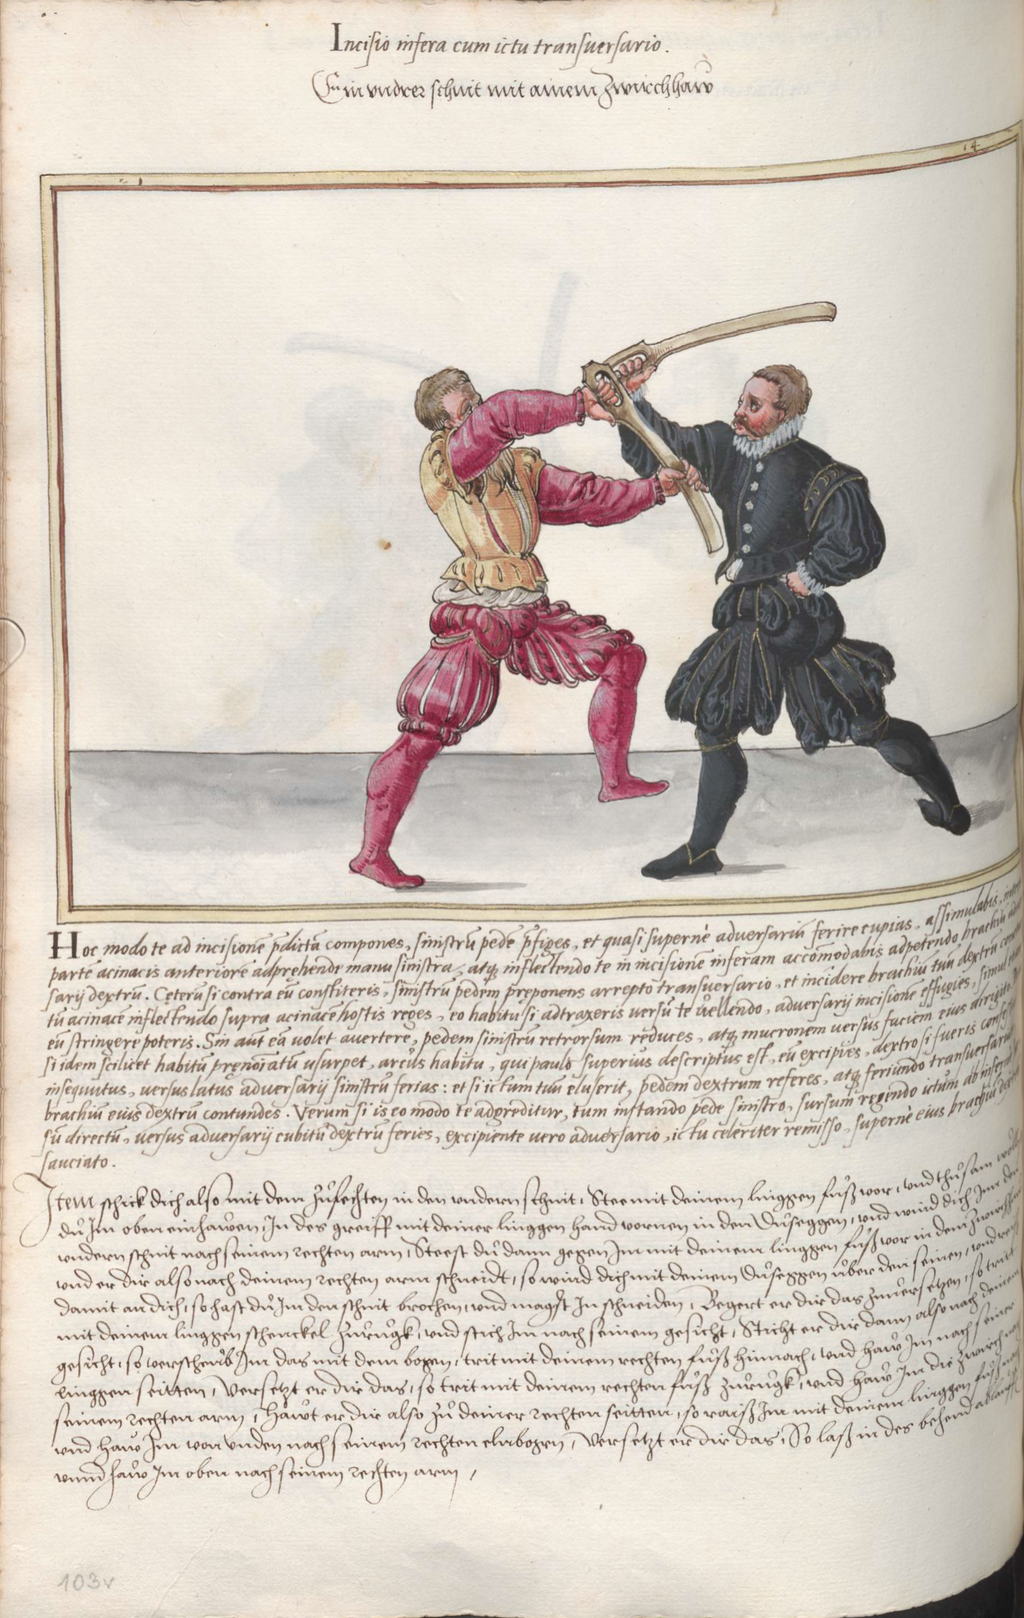 Incisio infera cum ictu transuersario.
Ein vndrer schnit mit ainem Zwirchhaw
14
Hoc modo te ad incisionē p̄dictā compones, sinistrū pedē p̄figes, et quasi supernè aduersariū ferire cupias, assimulabis,
parte acinacis anteriorē adprehende manu sinistra, atq; inflectendo te in incisionē inferam accōmodabis adpetendo brachiū
sarij dextrū. Ceterū si contra eū constiteris, sinistrū pedem preponens arrepto transuersario, et incidere brachiū tuū dextrū
tū acinacē inflectendo supra acinacē hostis reges, eo habitu si adtraxeris versū te vellendo, aduersarij incisionē effugies, simul
eū stringere poteris. Sin aūt eā volet auertere, pedem sinistrū retrorsum reduces, atq; mucronem versus faciem eius diriges
si idem scilicet habitū prenōiatū vsurpet, arcus habitu, qui paulo superius descriptus est, eū excipies, dextro si fueris
insequutus, versus latus aduersarij sinistrū ferias: et si ictum tuū eluserit, pedem dextrum referes, atq; feriundo transuersariè
brachiū eius dextrū contundes. Verum si is eo modo te adgreditur, tum instando pede sinistro, sursum regendo ictum ab infera
sū directū, versus aduersarij cubitū dextrū feries, excipiente vero aduersario, ictu celeriter remisso, supernè eius brachiū
sauciato.
Item schick dich also mit dem Zůfechten in den vndern schnit, Stee mit deinem linggen fůß vor, vnd thů sam
dů Im oben einhawen, In des greiff mit deiner linggen hand vornen in den Důseggen, vnd wind dich Im
vndern schnit nach seinem rechten arm, Steest dů dann gegen Im mit deinem linggen fůß vor in dem
vnd er dir also nach deinem rechten arm schneidt, so wind dich mit deinem Důseggen über den seinen, vnd
damit an dich, so hast dů Im den schnit brochen, vnd magst In schneiden, Begert er dir das Zuuersetzen, so trit
mit deinem linggen schenckel Zůrugk, vnd stich Im nach seinem gesicht, Sticht er dir dann also nach deinem
gesicht, so verscheub Im das mit dem bogen, trit mit deinem rechten fůß hinnach, vnd haw Im nach seiner
linggen seitten, Versetzt er dir das, so trit mit deinem rechten fůß Zůrugk, vnd haw Im die Zwirch nach
seinem rechten arm, Hawt er dir also Zů deiner rechten seitten, so raiß Im mit deinem linggen fůß
vnd haw Im von vnden nach seinem rechten elnbogen, Versetzt er dir das, So laß in des behend
vnnd haw Im oben nach seinem rechten arm,
103v